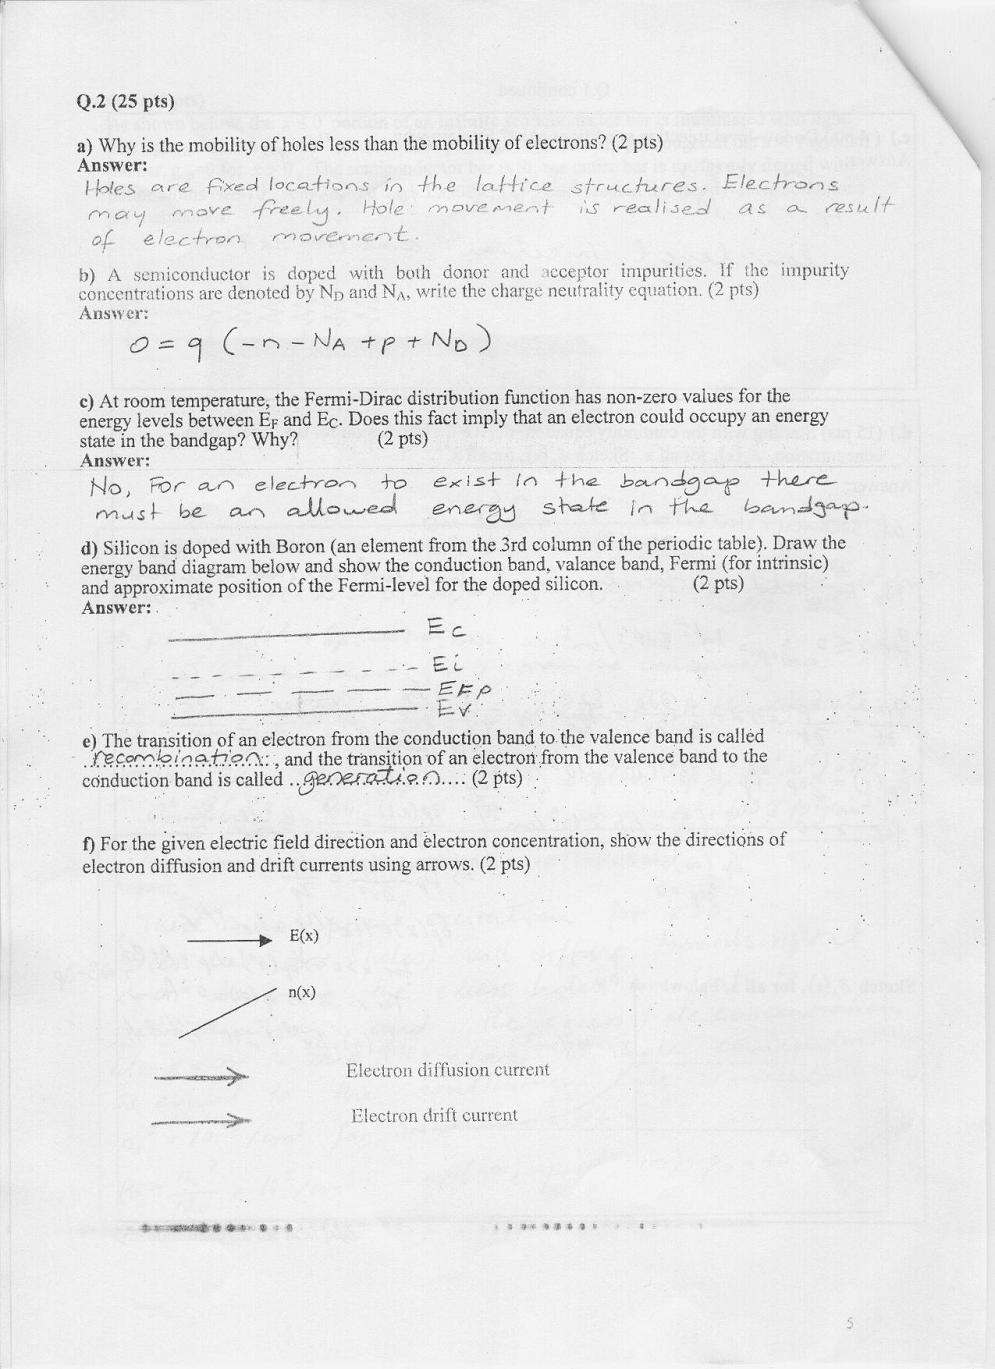 Q.2 (25 pts)
a) Why is the mobility of holes less than the mobility of electrons? (2 pts)
Answer:
Holes are fixed locations in the lattice structures. Electrons
may move freely. Hole movement is realised as a result
of electron movement.
b) A semiconductor is doped with both donor and acceptor impurities. If the impurity
concentrations are denoted by ND and NA, write the charge neutrality equation. (2 pts)
Answer:
0 = q (-n - NA + p + ND)
c) At room temperature, the Fermi-Dirac distribution function has non-zero values for the
energy levels between EF and EC. Does this fact imply that an electron could occupy an energy
state in the bandgap? Why? (2 pts)
Answer:
No, For an electron to exist in the bandgap there
must be an allowed energy state in the bandgap.
d) Silicon is doped with Boron (an element from the 3rd column of the periodic table). Draw the
energy band diagram below and show the conduction band, valance band, Fermi (for intrinsic)
and approximate position of the Fermi-level for the doped silicon. (2 pts)
Answer:
Ec
Ei
EFp
Ev
e) The transition of an electron from the conduction band to the valence band is called
..recombination.., and the transition of an electron from the valence band to the
conduction band is called ..generation.... (2 pts)
f) For the given electric field direction and electron concentration, show the directions of
electron diffusion and drift currents using arrows. (2 pts)
E(x)
n(x)
Electron diffusion current
Electron drift current
5